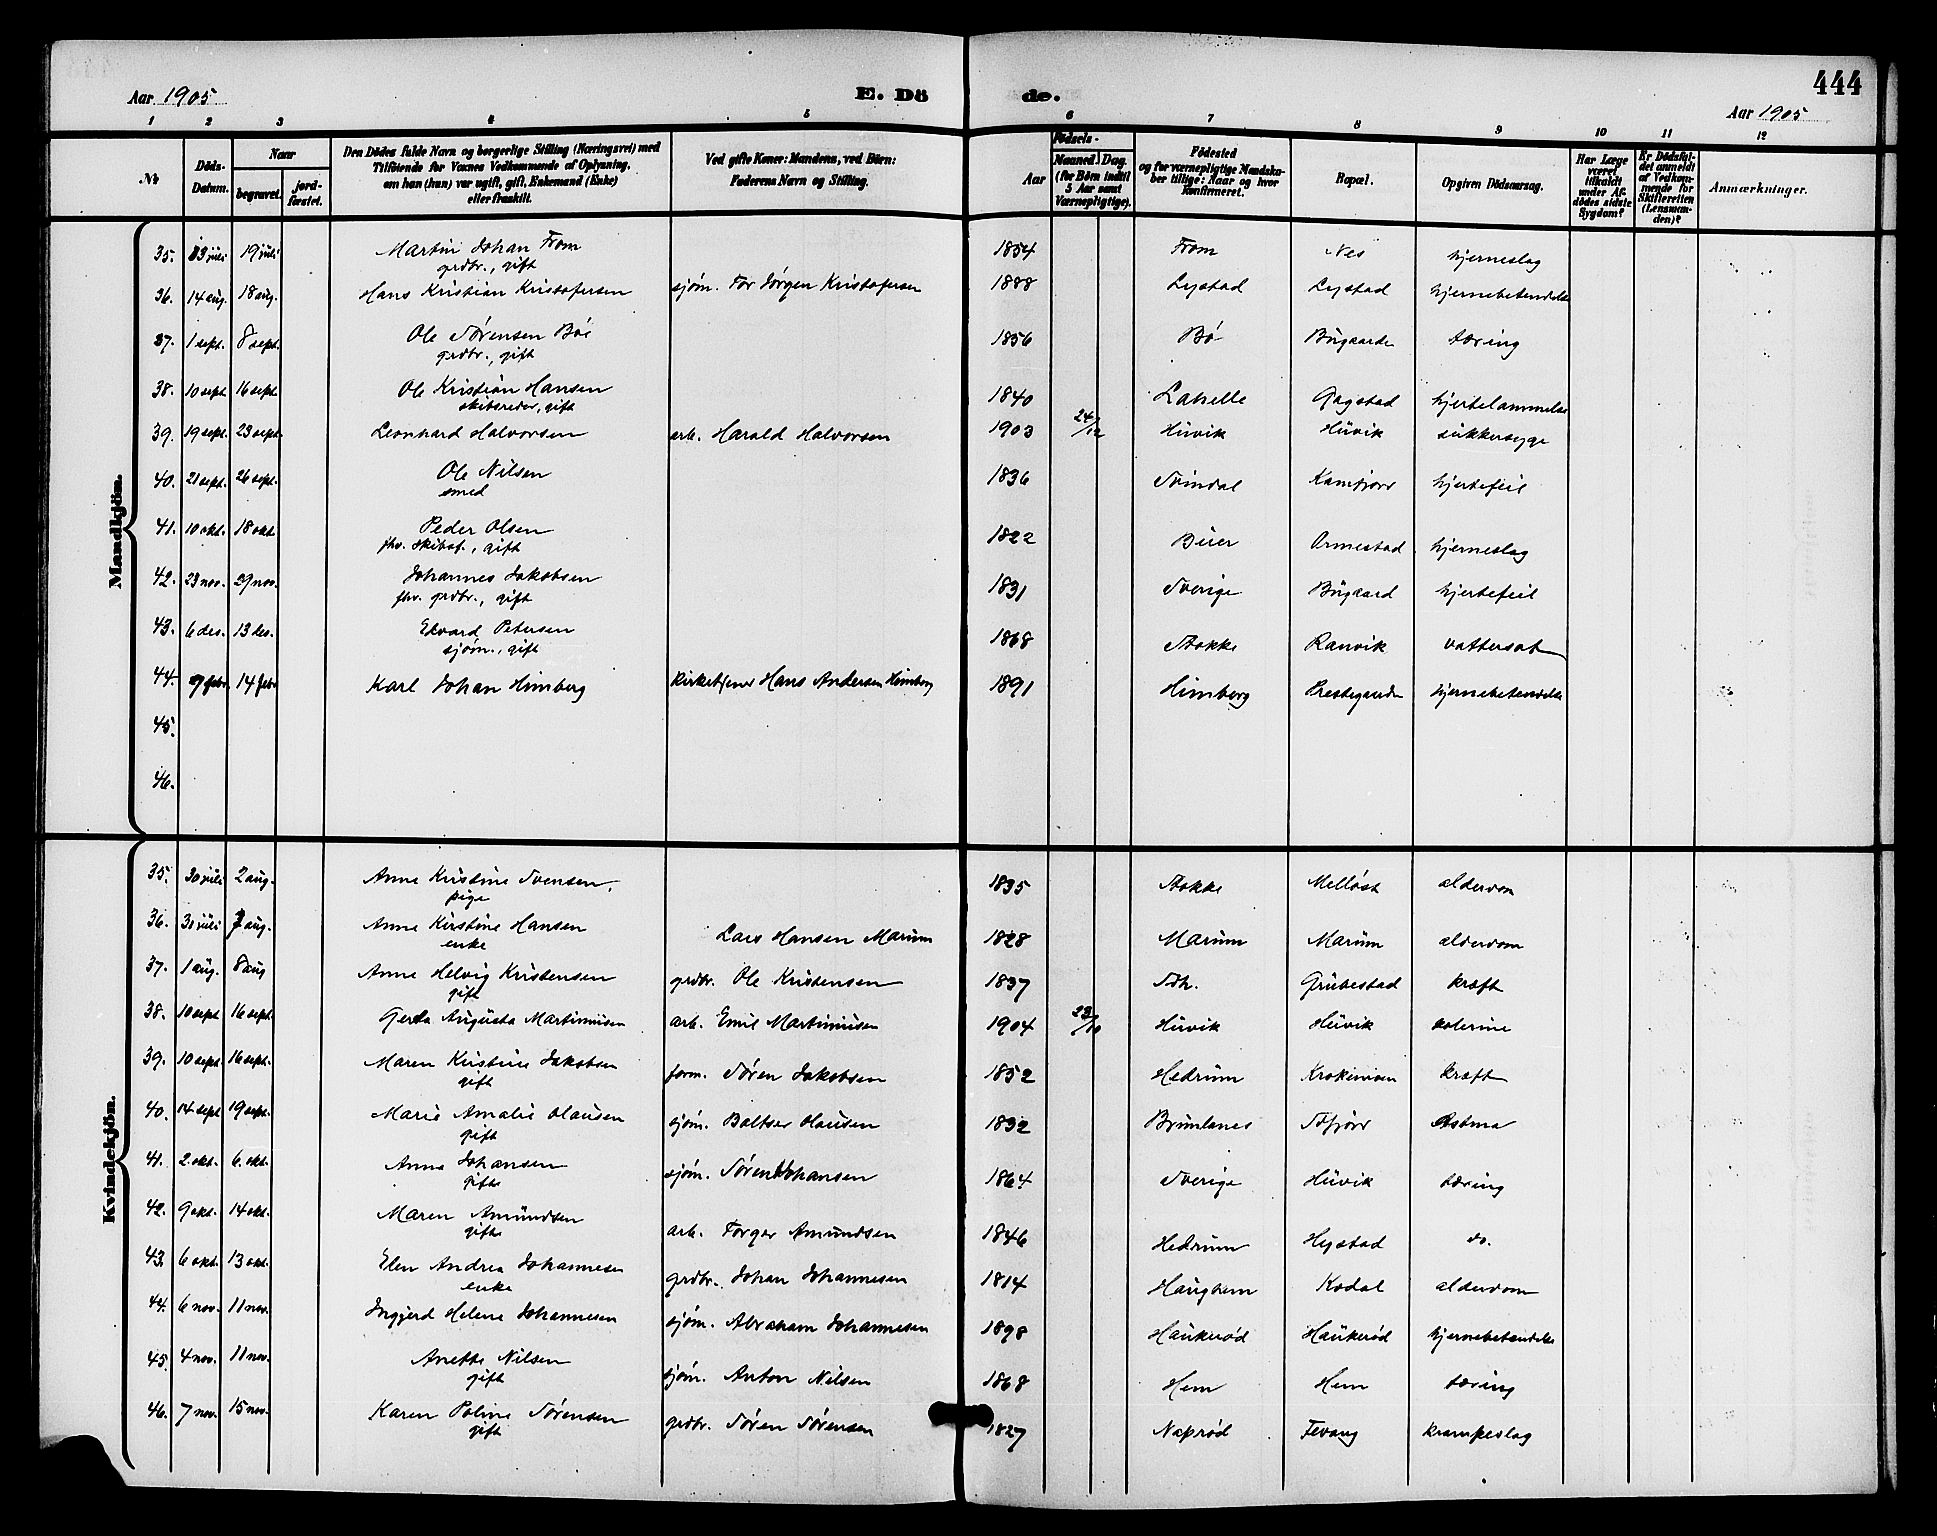 444
Aar 1905 E. Dö de. Aar 1905
1 2 3 4 5 6 7 8 9 10 11 12
No
Döds-Datum.
Naar
begravet. jord-fæstet.
Den Dödes fulde Navn og borgerlige Stilling (Næringsvei) med
Tilföiende for Voxnes Vedkommende af Oplysning,
om han (hun) var ugift, gift, Enkemand (Enke)
eller fraskilt.
Ved gifte Koner: Mandens, ved Börn:
Faderens Navn og Stilling.
Födsels-
Aar Maaned. Dag.
(for Börn indtil
5 Aar samt
Værnepligtige).
Födested
og for værnepligtige Mandska-
ber tillige: Naar og hvor
Konfirmeret.
Bopæl.
Opgiven Dödsaarsag.
Har Læge
været
tilkaldt
under Af-
dödes sidste
Sygdom?
Er Dödsfal-
det anmeldt
af Vedkom-
mende for
Skifteretten
(Lensman-
den)?
Anmærkninger.
Mandkjön.
35. 13 juli 19 juli Martin Johan From 1854 From Nes hjerneslag
grdbr., gift
36. 14 aug. 18 aug. Hans Kristian Kristofersen sjøm. Tor Jørgen Kristofersen 1888 Lystad Lystad hjernebetendelse
37. 1 sept. 8 sept. Ole Sørensen Bøe 1856 Bø Bugaarden tæring
grdbr., gift
38. 10 sept. 16 sept. Ole Kristian Hansen 1840 Lahelle Gogstad hjertelammelse
skibsreder, gift
39. 19 sept. 23 sept. Leonhard Halvorsen arb. Harald Halvorsen 1903 24/12 Huvik Huvik sukkersyge
40. 21 sept. 26 sept. Ole Nilsen 1836 Svindal Kamfjord hjertefeil
smed
41. 10 okt. 18 okt. Peder Olsen 1822 Buer Ormestad hjerneslag
fhv. skibsf., gift
42. 23 nov. 29 nov. Johannes Jakobsen 1831 Sverige Bugaard hjertefeil
fhv. grdbr., gift
43. 6 des. 13 des. Edvard Petersen 1868 Stokke Ranvik vattersot
sjøm., gift
44. 7 febr. 14 febr. Karl Johan Himberg kirketjener Hans Andersen Himberg 1891 Himberg Prestegaarden hjernebetendelse
45.
46.
Kvindekjön.
35. 30 juli 2 aug. Anne Kristine Svensen, 1835 Stokke Melløst alderdom
pige
36. 31 juli 7 aug. Anne Kirstine Hansen Lars Hansen Marum 1828 Marum Marum alderdom
enke
37. 1 aug. 8 aug Anne Helvig Kristensen grdbr. Ole Kristensen 1837 Sdh. Grubestad kræft
gift
38. 10 sept 16 sept. Gerda Augusta Martinnisen arb. Emil Martinnisen 1904 23/10 Huvik Huvik kolerine
39. 10 sept. 16 sept. Maren Kristine Jakobsen form. Søren Jakobsen 1852 Hedrum Krokemoen kræft
gift
40. 14 sept 19 sept. Marie Amalie Olausen sjøm. Baltser Olausen 1832 Brunlanes Sfjord Astma
gift
41. 2. okt. 6. okt. Anna Johansen sjøm. Søren Johansen 1864 Sverige Huvik tæring
gift
42. 9 okt. 14 okt. Maren Amundsen arb. Torger Amundsen 1846 Hedrum Hystad do.
gift
43. 6 okt. 13 okt. Elen Andrea Johannesen grdbr. Johan Johannesen 1814 Haughem Kodal alderdom
enke
44. 6 nov. 11 nov. Ingjerd Helene Johannesen sjøm. Abraham Johannesen 1898 Haukerød Haukerød hjernebetendelse
45. 4 nov. 11 nov. Anette Nilsen sjøm. Anton Nilsen 1868 Hem Hem tæring
gift
46. 7 nov. 15 nov. Karen Poline Sørensen grdbr. Søren Sørensen 1827 Naprød Fevang krampeslag
gift